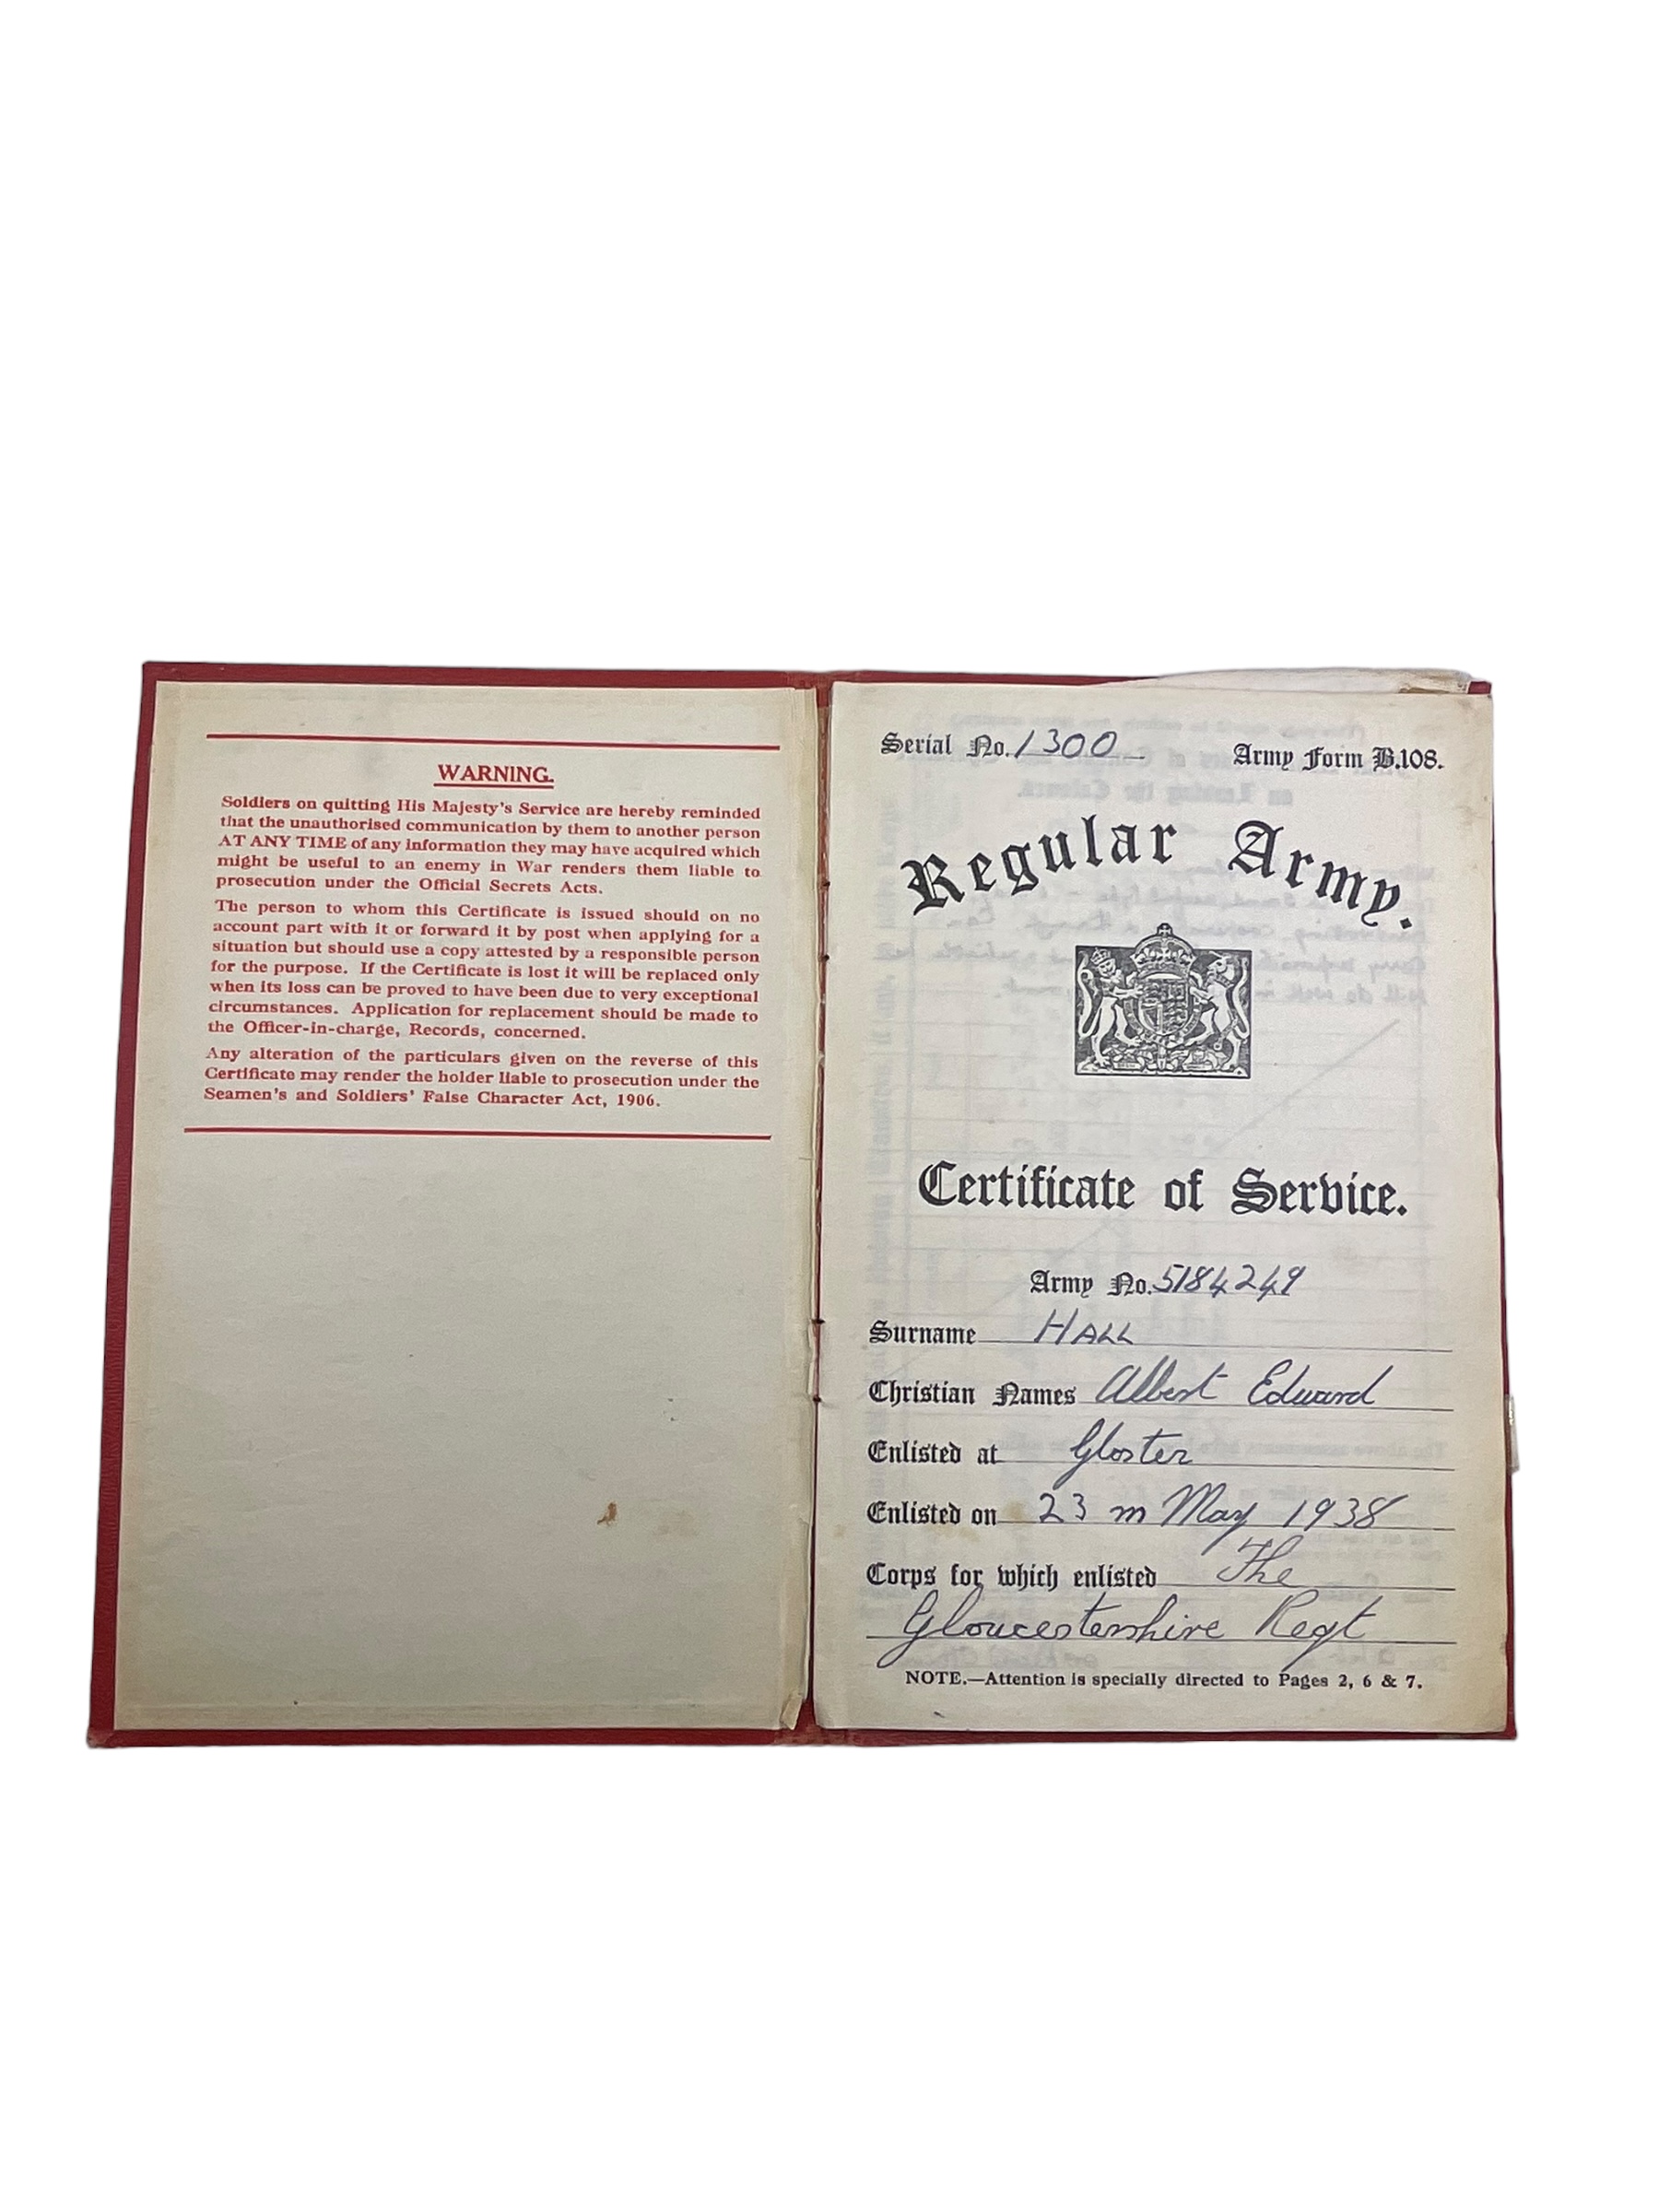 WARNING.
Soldiers on quitting His Majesty's Service are hereby reminded
that the unauthorised communication by them to another person
AT ANY TIME of any information they may have acquired which
might be useful to an enemy in War renders them liable to
prosecution under the Official Secrets Acts.
The person to whom this Certificate is issued should on no
account part with it or forward it by post when applying for a
situation but should use a copy attested by a responsible person
for the purpose. If the Certificate is lost it will be replaced only
when its loss can be proved to have been due to very exceptional
circumstances. Application for replacement should be made to
the Officer-in-charge, Records, concerned.
Any alteration of the particulars given on the reverse of this
Certificate may render the holder liable to prosecution under the
Seamen's and Soldiers' False Character Act, 1906.
Serial No. 1300 Army Form B.108.
Regular Army.
Certificate of Service.
Army No. 5184249
Surname HALL
Christian Names Albert Edward
Enlisted at Gloster
Enlisted on 23 May 1938
Corps for which enlisted The
Gloucestershire Regt
NOTE.—Attention is specially directed to Pages 2, 6 & 7.